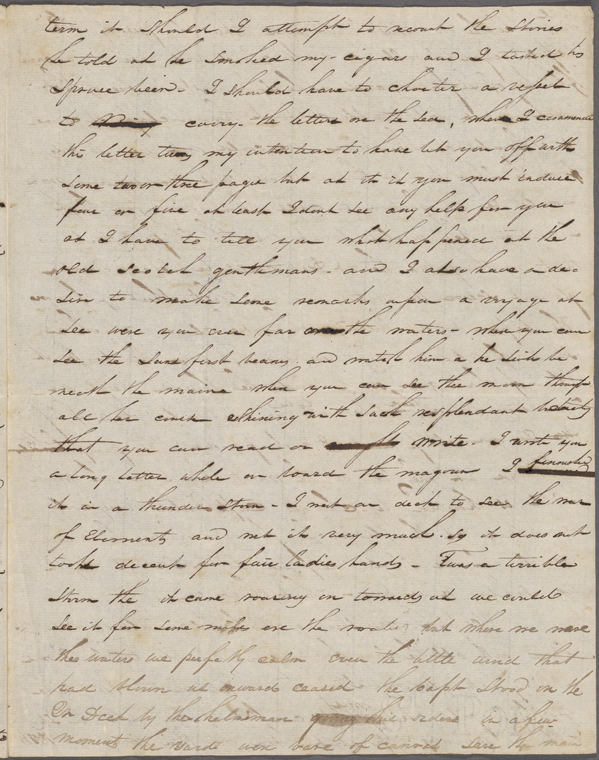 term it should I attempt to recount the stories
he told as he smoked my cigars and I tasted his
Spruce beer. I should have to charter a vessel
to carry the letter on the sea, when I commenced
this letter twas my intention to have let you off with
some two or three pages but as it is you must induce
four or five at least I dont see any help for you
as I have to tell you what happened at the
old scotch gentlemans. and I also have a de-
sire to make some remarks upon a voyage at
see were you are far the waters - when you can
see the suns first beams and watch him a he sinks be
neath the maine when you can see the moon through
all her course shining with such resplendant
that you can read or write. I wrote you
a long letter while on board the I finished
it in a thunder storm - I sat on deck to see the war
of Elements and wet it very much. so it does not
look decent for fair ladies hands - Twas a terrible
storm the it came roaring on towards us we could
see it for some miles ere the but where we were
the waters we perfectly calm even the little wind that
had blown us onward ceased the Capt stood on the
Qr Deck by the helmsman giving his orders in a few
moments the yards were bare of canvas save the main